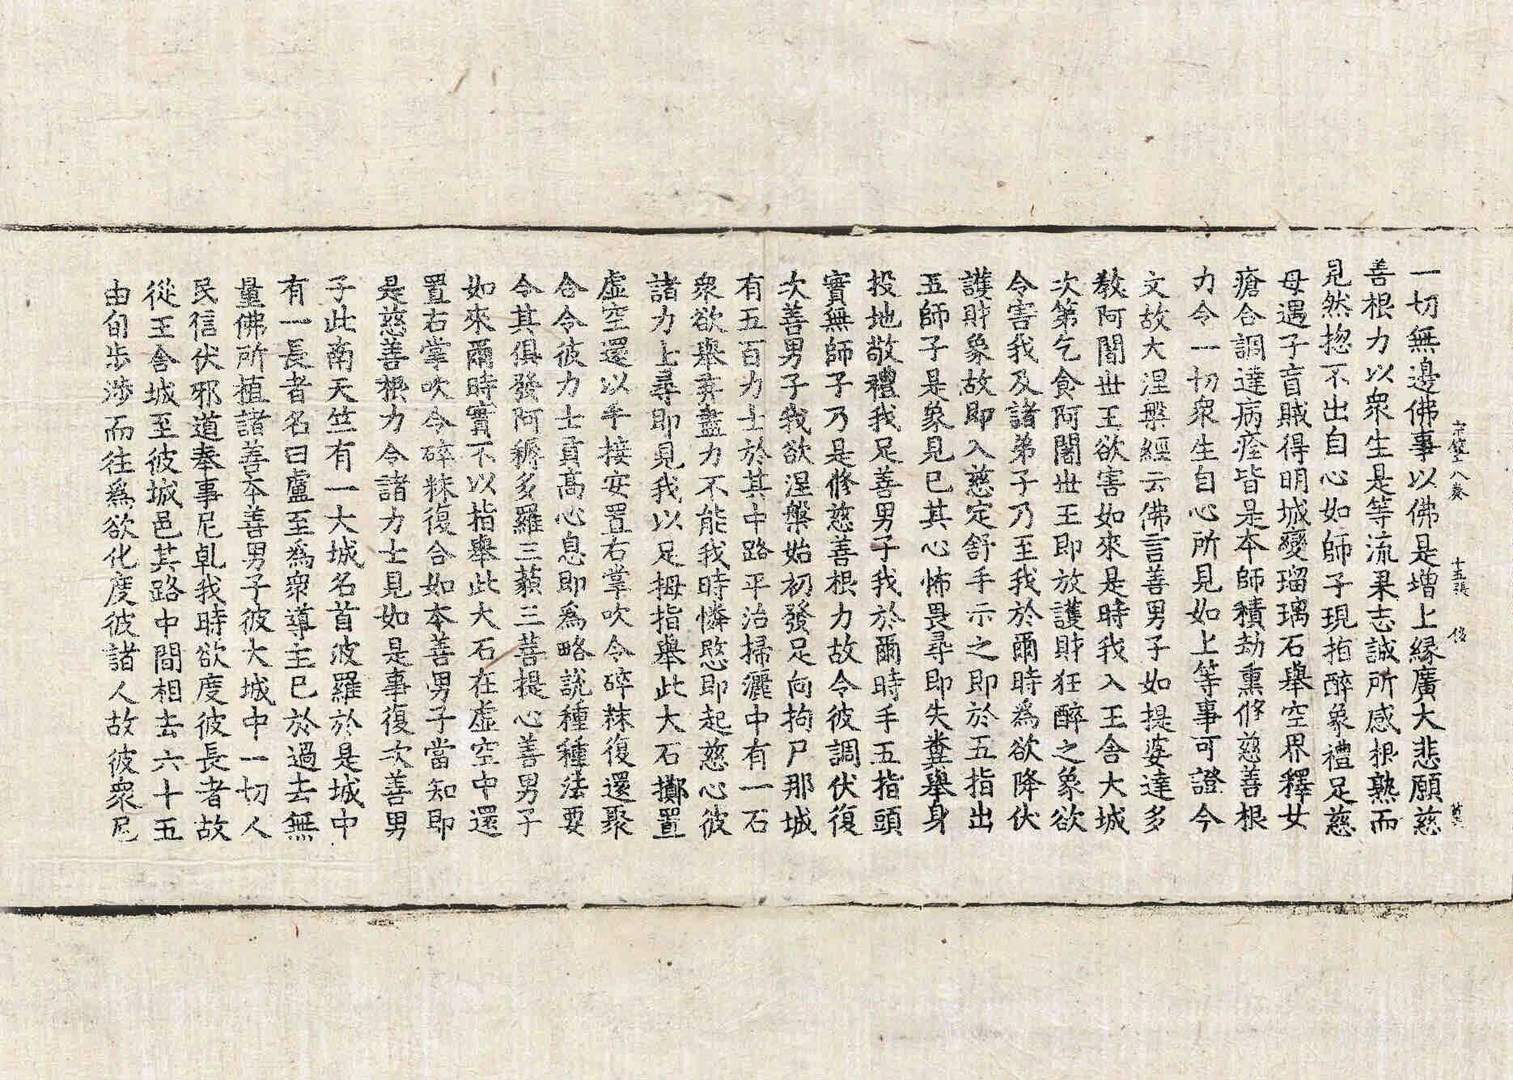 一切無邊佛事以佛是增上緣廣大悲願慈
善根力以衆生是等流果志誠所感根熟而
見然揔不出自心如師子現指醉象禮足慈
母遇子盲賊得明城變瑠璃石舉空界釋女
瘡合調達病痊皆是本師積劫熏修慈善根
力令一切衆生自心所見如上等事可證今
文故大涅槃經云佛言善男子如提婆達多
教阿闍世王欲害如來是時我入王舍大城
次第乞食阿闍世王即放護財狂醉之象欲
令害我及諸弟子乃至我於爾時爲欲降伏
護財象故即入慈定舒手示之即於五指出
五師子是象見已其心怖畏尋即失糞舉身
投地敬禮我足善男子我於爾時手五指頭
實無師子乃是修慈善根力故令彼調伏復
次善男子我欲涅槃始初發足向拘尸那城
有五百力士於其中路平治掃灑中有一石
衆欲舉弃盡力不能我時憐愍即起慈心彼
諸力士尋即見我以足拇指舉此大石擲置
虛空還以手接安置右掌吹令碎粖復還聚
合令彼力士貢高心息即爲略說種種法要
令其俱發阿耨多羅三藐三菩提心善男子
如來爾時實不以指舉此大石在虛空中還
置右掌吹令碎粖復合如本善男子當知即
是慈善根力令諸力士見如是事復次善男
子此南天竺有一大城名首波羅於是城中
有一長者名曰盧至爲衆導主已於過去無
量佛所植諸善本善男子彼大城中一切人
民信伏邪道奉事尼乹我時欲度彼長者故
從王舍城至彼城邑其路中間相去六十五
由旬步涉而往爲欲化度彼諸人故彼衆尼